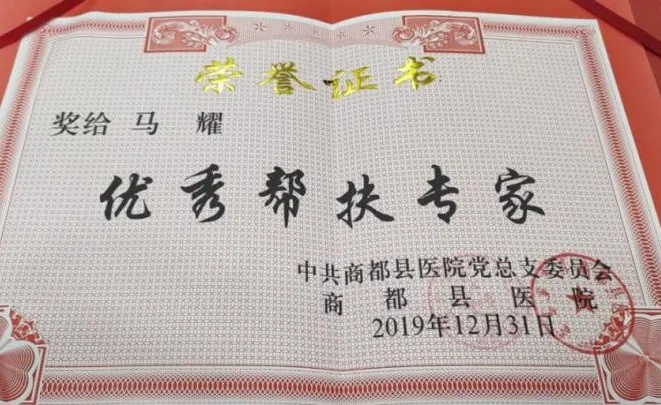 荣誉证书
奖给 马 耀
优秀帮扶专家
中共商都县医院党总支委员会
商都县医院
2019年12月31日